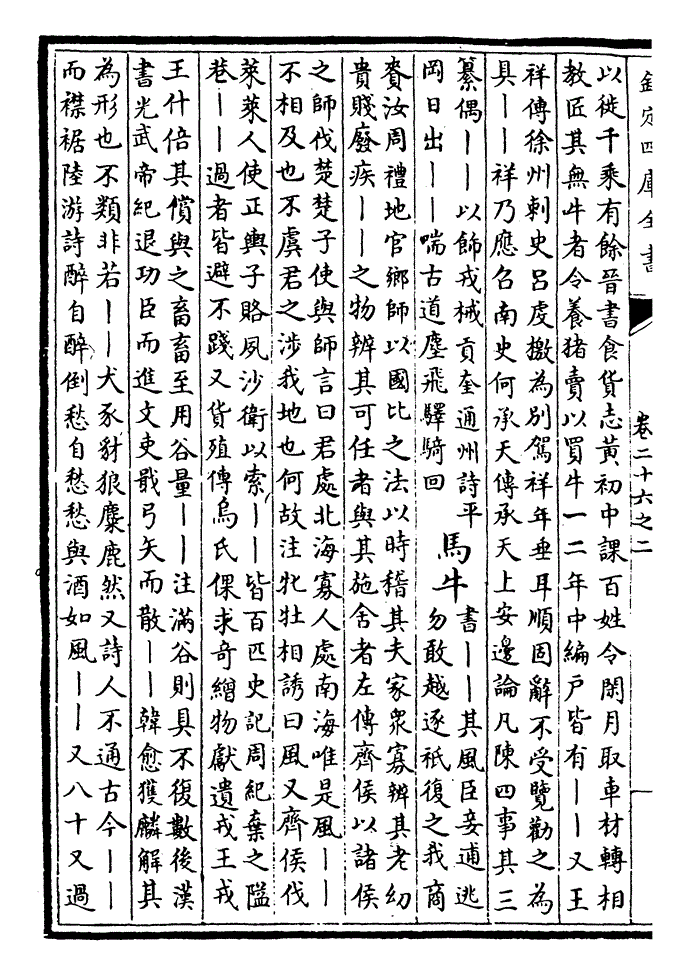 欽定四庫全書
卷二十六之二
以徙千乘有餘晉書食貨志黃初中課百姓令閑月取車材轉相
教匠其無牛者令養猪賣以買牛一二年中編戶皆有丨丨又王
祥傳徐州刺史呂虔檄為別駕祥年垂耳順固辭不受覽勸之為
具丨丨祥乃應召南史何承天傳承天上安邊論凡陳四事其三
纂偶丨丨以飾戎械貢奎通州詩平
岡日出丨丨喘古道塵飛驛騎回
馬牛
書丨丨其風臣妾逋逃
勿敢越逐祇復之我商
賚汝周禮地官鄉師以國比之法以時稽其夫家衆寡辨其老幼
貴賤廢疾丨丨之物辨其可任者與其施舍者左傳齊侯以諸侯
之師伐楚楚子使與師言曰君處北海寡人處南海唯是風丨丨
不相及也不虞君之涉我地也何故注牝牡相誘曰風又齊侯伐
萊萊人使正輿子賂夙沙衛以索丨丨皆百匹史記周紀棄之隘
巷丨丨過者皆避不踐又貨殖傳烏氏倮求奇繒物獻遺戎王戎
王什倍其償與之畜畜至用谷量丨丨注滿谷則具不復數後漢
書光武帝紀退功臣而進文吏戢弓矢而散丨丨韓愈獲麟解其
為形也不類非若丨丨犬豕豺狼麋鹿然又詩人不通古今丨丨
而襟裾陸游詩醉自醉倒愁自愁愁與酒如風丨丨又八十又過